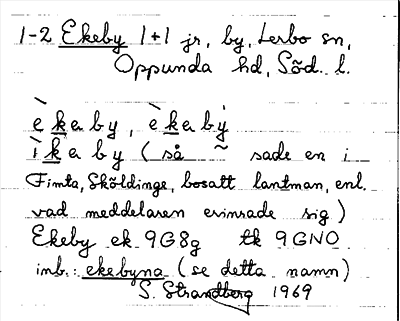 1-2 Ekeby 1+1 jr, by, Lerbo sn,
Oppunda hd, Söd. l.
èkeby, èkebý
ìkeby (så ~ sade en i
Finta, Sköldinge, bosatt lantman, enl.
vad meddelaren erinrade sig)
Ekeby ek 9G8g tk 9GNO
inb.: ekebyna (se detta namn)
S. Strandberg 1969